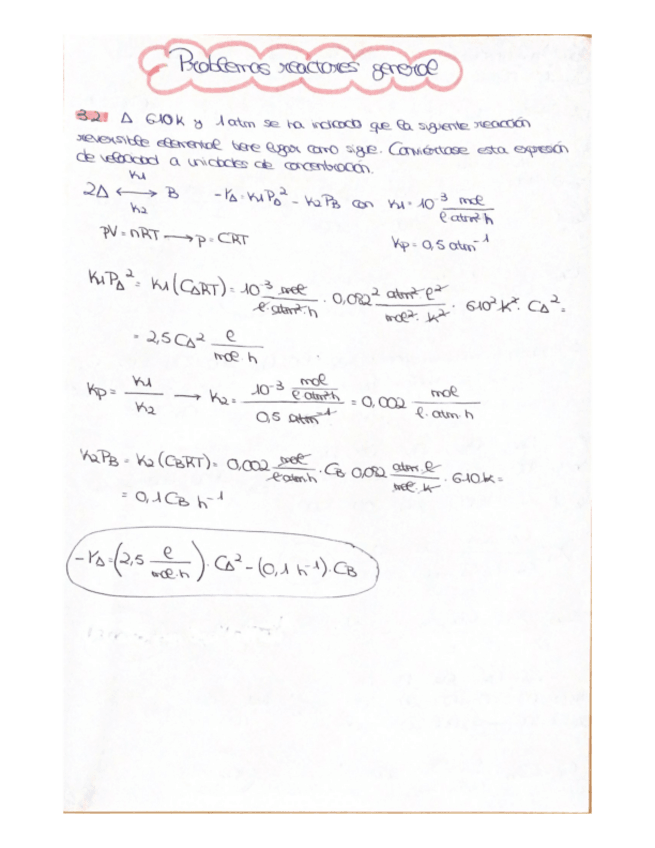 Problemas reactores general
3.2. A 610K y 1 atm se ha indicado que la siguiente reacción
reversible elemental tiene lugar como sigue. Conviértase esta expresión
de velocidad a unidades de concentración.
2A ⟷ B (K1, K2) -rA = K1PA² - K2PB con K1 = 10⁻³ mol / l·atm²·h
PV = nRT → p = CRT Kp = 0,5 atm⁻¹
K1PA² = K1(CART) = 10⁻³ mol / l·atm²·h · 0,082² atm²·l² / mol²·K² · 610² K² · CA² =
= 2,5 CA² l / mol·h
Kp = K1 / K2 → K2 = 10⁻³ mol / l·atm²·h / 0,5 atm⁻¹ = 0,002 mol / l·atm·h
K2PB = K2(CBRT) = 0,002 mol / l·atm·h · CB 0,082 atm·l / mol·K · 610K =
= 0,1 CB h⁻¹
-rA = (2,5 l / mol·h) · CA² - (0,1 h⁻¹) · CB